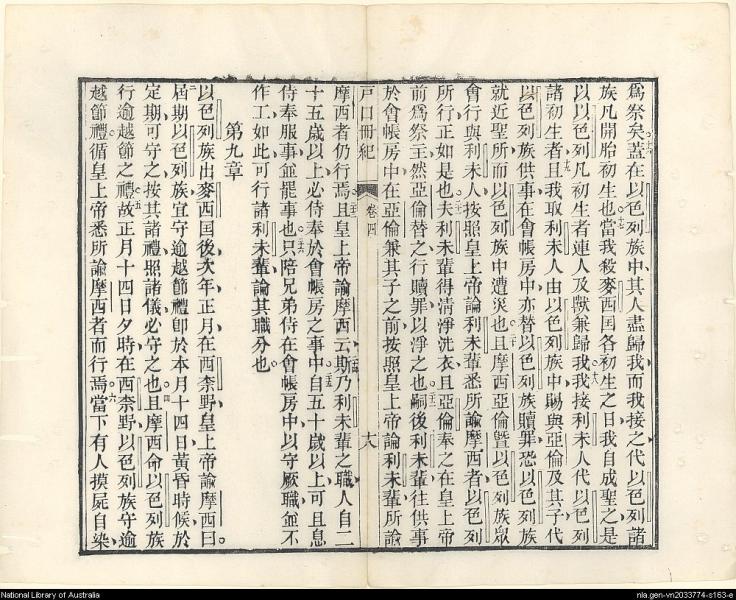 爲祭矣十六蓋在以色列族中其人盡歸我而我接之代以色列諸
族凡開胎初生也十七當我殺麥西国各初生之日我自成聖之是
以以色列凡初生者連人及獸兼歸我十八我接利未人代以色列
諸初生者十九且我取利未人由以色列族中賜與亞倫及其子代
以色列族供事在會帳房中亦替以色列族贖罪恐以色列族
就近聖所而以色列族中遭災也二十且摩西亞倫曁以色列族眾
會行與利未人按照皇上帝諭利未輩悉所諭摩西者以色列
所行正如是也二十一夫利未輩得清淨洗衣且亞倫奉之在皇上帝
前爲祭主然亞倫替之行贖罪以淨之也二十二嗣後利未輩往供事
於會帳房中在亞倫兼其子之前按照皇上帝諭利未輩所諭
戶口冊紀 卷四 十八
摩西者仍行焉二十三且皇上帝諭摩西云二十四斯乃利未輩之職人自二
十五歲以上必侍奉於會帳房之事中二十五自五十歲以上可且息
侍奉服事並罷事也二十六只陪兄弟侍在會帳房中以守厥職並不
作工如此可行諸利未輩諭其職分也
第九章
以色列族出麥西国後次年正月在西柰野皇上帝諭摩西曰
二屆期以色列族宜守逾越節禮三卽於本月十四日黃昏時候於
定期可守之按其諸禮照諸儀必守之也四且摩西命以色列族
行逾越節之禮五故正月十四日夕時在西柰野以色列族守逾
越節禮循皇上帝悉所諭摩西者而行焉六當下有人摸屍自染
National Library of Australia
nla.gen-vn2033774-s163-e